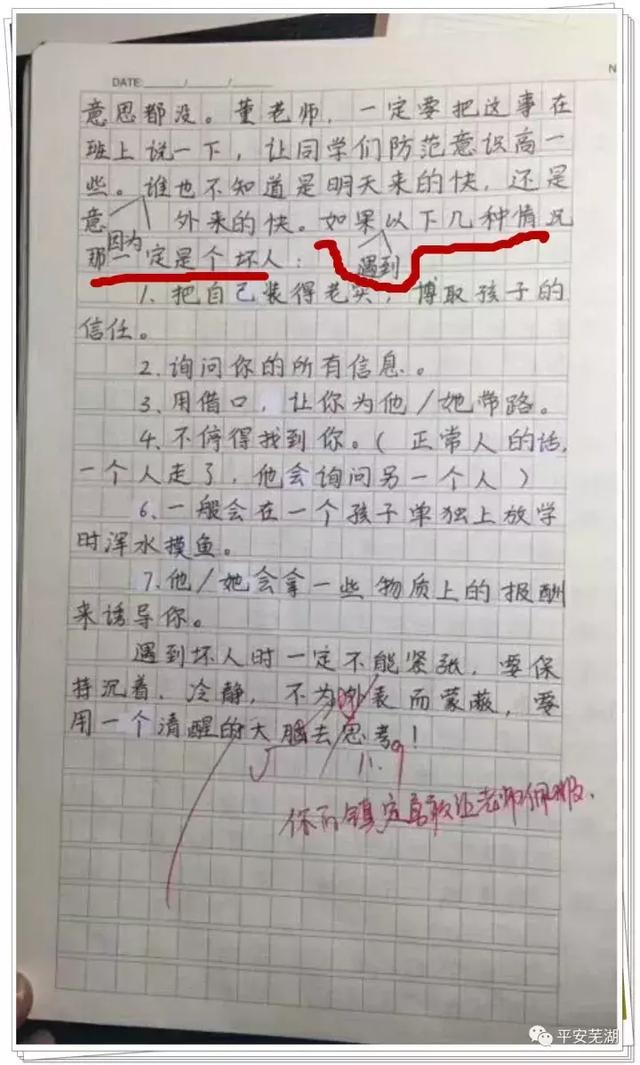 DATE: / /
意思都没。董老师，一定要把这事在
班上说一下，让同学们防范意识高一
些。谁也不知道是明天来的快，还是
意外来的快。如果以下几种情况
因为
遇到
那一定是个坏人：
1、把自己装得老实，博取孩子的
信任。
2、询问你的所有信息。
3、用借口，让你为他/她带路。
4、不停得找到你。（正常人的话，
一个人走了，他会询问另一个人）
6、一般会在一个孩子单独上放学
时浑水摸鱼。
7、他/她会拿一些物质上的报酬
来诱导你。
遇到坏人时一定不能紧张，要保
持沉着、冷静，不为外表而蒙蔽，要
用一个清醒的大脑去思考！
11.9
你的镇定勇敢让老师佩服.
平安芜湖